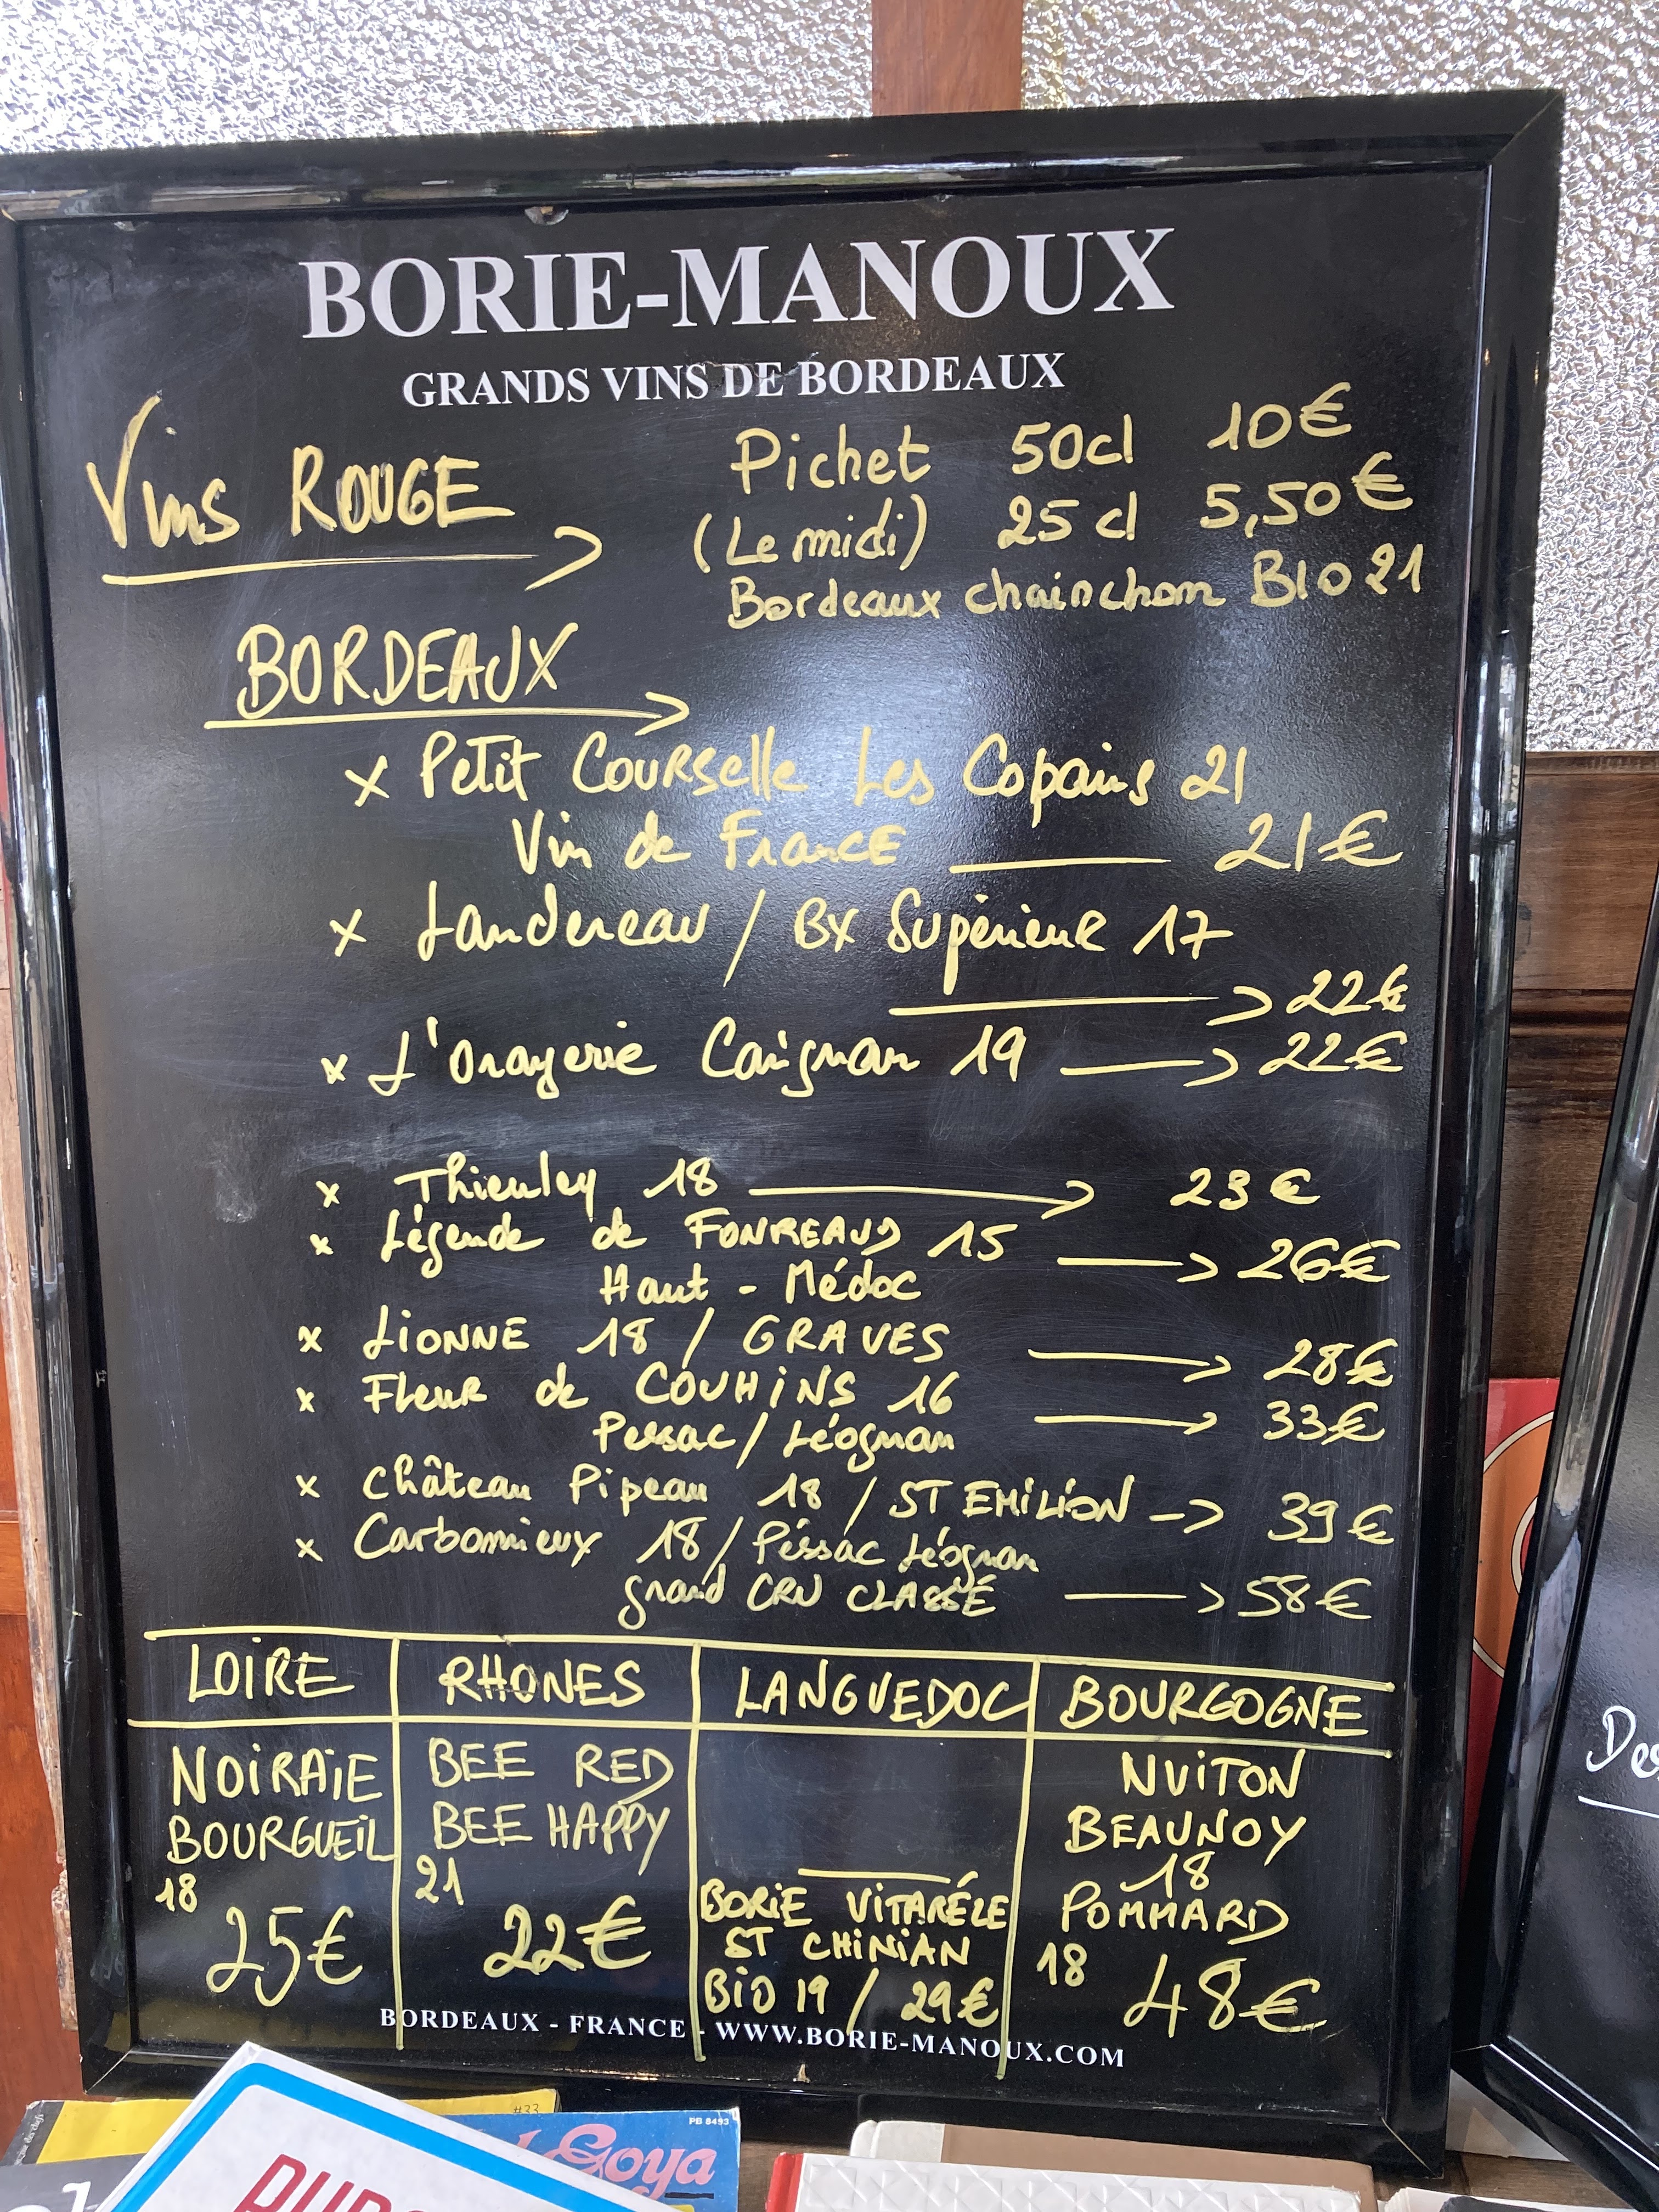 BORIE-MANOUX
GRANDS VINS DE BORDEAUX
Vins ROUGE
Pichet 50cl 10€
(Le midi) 25cl 5,50€
Bordeaux chainchon BIO 21
BORDEAUX
x Petit Courselle Les Copains 21
Vin de France 21€
x Landereau / BX Supérieur 17
22€
x L'Orangerie Carignan 19 22€
x Thieuley 18 23€
x Légende de FONREAUD 15 26€
Haut-Médoc
x LIONNE 18 / GRAVES 28€
x Fleur de COUHINS 16 33€
Pessac/Léognan
x Château Pipeau 18 / ST EMILION 39€
x Carbonnieux 18 / Péssac Léognan
grand CRU CLASSÉ 58€
LOIRE RHONES LANGUEDOC BOURGOGNE
NOIRAIE
BOURGUEIL
18
25€
BEE RED
BEE HAPPY
21
22€
BORIE VITARÉLE
ST CHINIAN
BIO 19 / 29€
NUITON
BEAUNOY
18
POMMARD
18 48€
BORDEAUX - FRANCE - WWW.BORIE-MANOUX.COM
#33
Goya
PB 8493